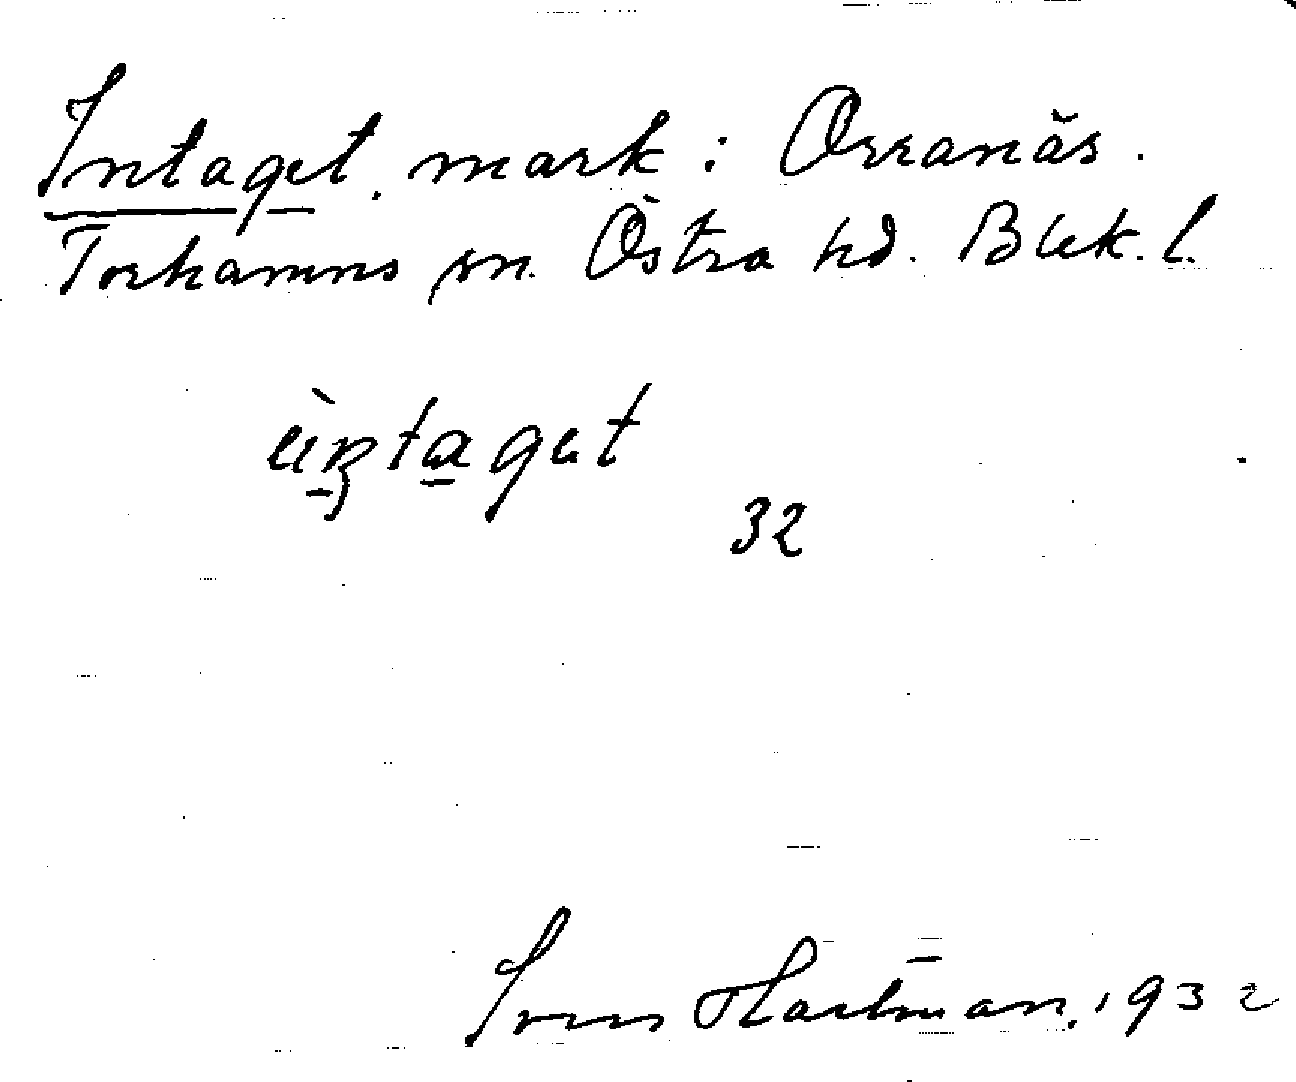 Intaget. mark i Orranäs.
Torhamns sn. Östra hd. Blek. l.
32
Sven Hartman, 1932